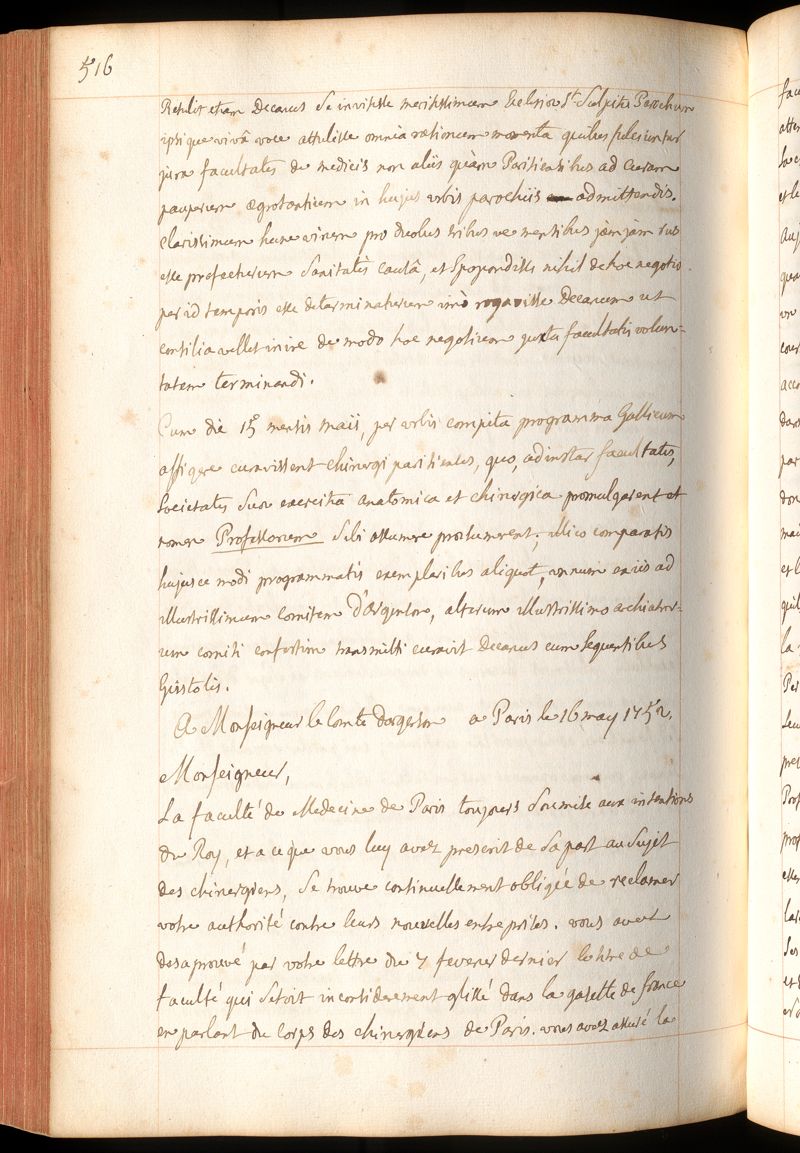 516
Retulit etiam Decanus se invisisse meritissimum Ecclesiæ Sti Sulpitii Parochum
ipsique vivâ voce attulisse omnia rationum momenta quibus fulciuntur
jura facultatis de medicis non aliis quàm Parisiensibus ad curam
pauperum ægrotantium in hujus urbis parochiis admittendis.
clarissimum hunc virum pro duobus tribus ve mensibus jàmjàm rus
esse profecturum sanitatis causâ, et spopondisse nihil de hoc negotio
per id temporis esse determinaturum imò rogavisse Decanum ut
consilia vellet inire de modo hoc negotium juxta facultatis volun-
tatem terminandi.
Cum die 15 mensis maii, per urbis compita programma Gallicum
affigere curavissent chirurgi parisienses, quo, ad instar facultatis,
societatis suæ exercitia anatomica et chirurgica promulgarent et
nomen Professorum sibi assumere præsumerent; illico comparatis
hujusce modi programmatis exemplaribus aliquot, unum ex iis ad
illustrissimum comitem D'argenson, alterum illustrissimo archiatro-
rum comiti confestim transmitti curavit Decanus cum sequentibus
Epistolis.
A Monseigneur le Comte dargenson a Paris le 16 may 1752.
Monseigneur,
La faculté de Medecine de Paris toujours soumise aux intentions
du Roy, et a ce que vous luy avez prescrit de sa part au sujet
des chirurgiens, se trouve continuellement obligée de reclamer
votre authorité contre leurs nouvelles entreprises. vous avez
desaprouvé par votre lettre du 7 fevrier dernier le titre de
faculté qui s'etoit inconsiderement glissé dans la gazette de france
en parlant du Corps des chirurgiens de Paris. vous avez assuré la